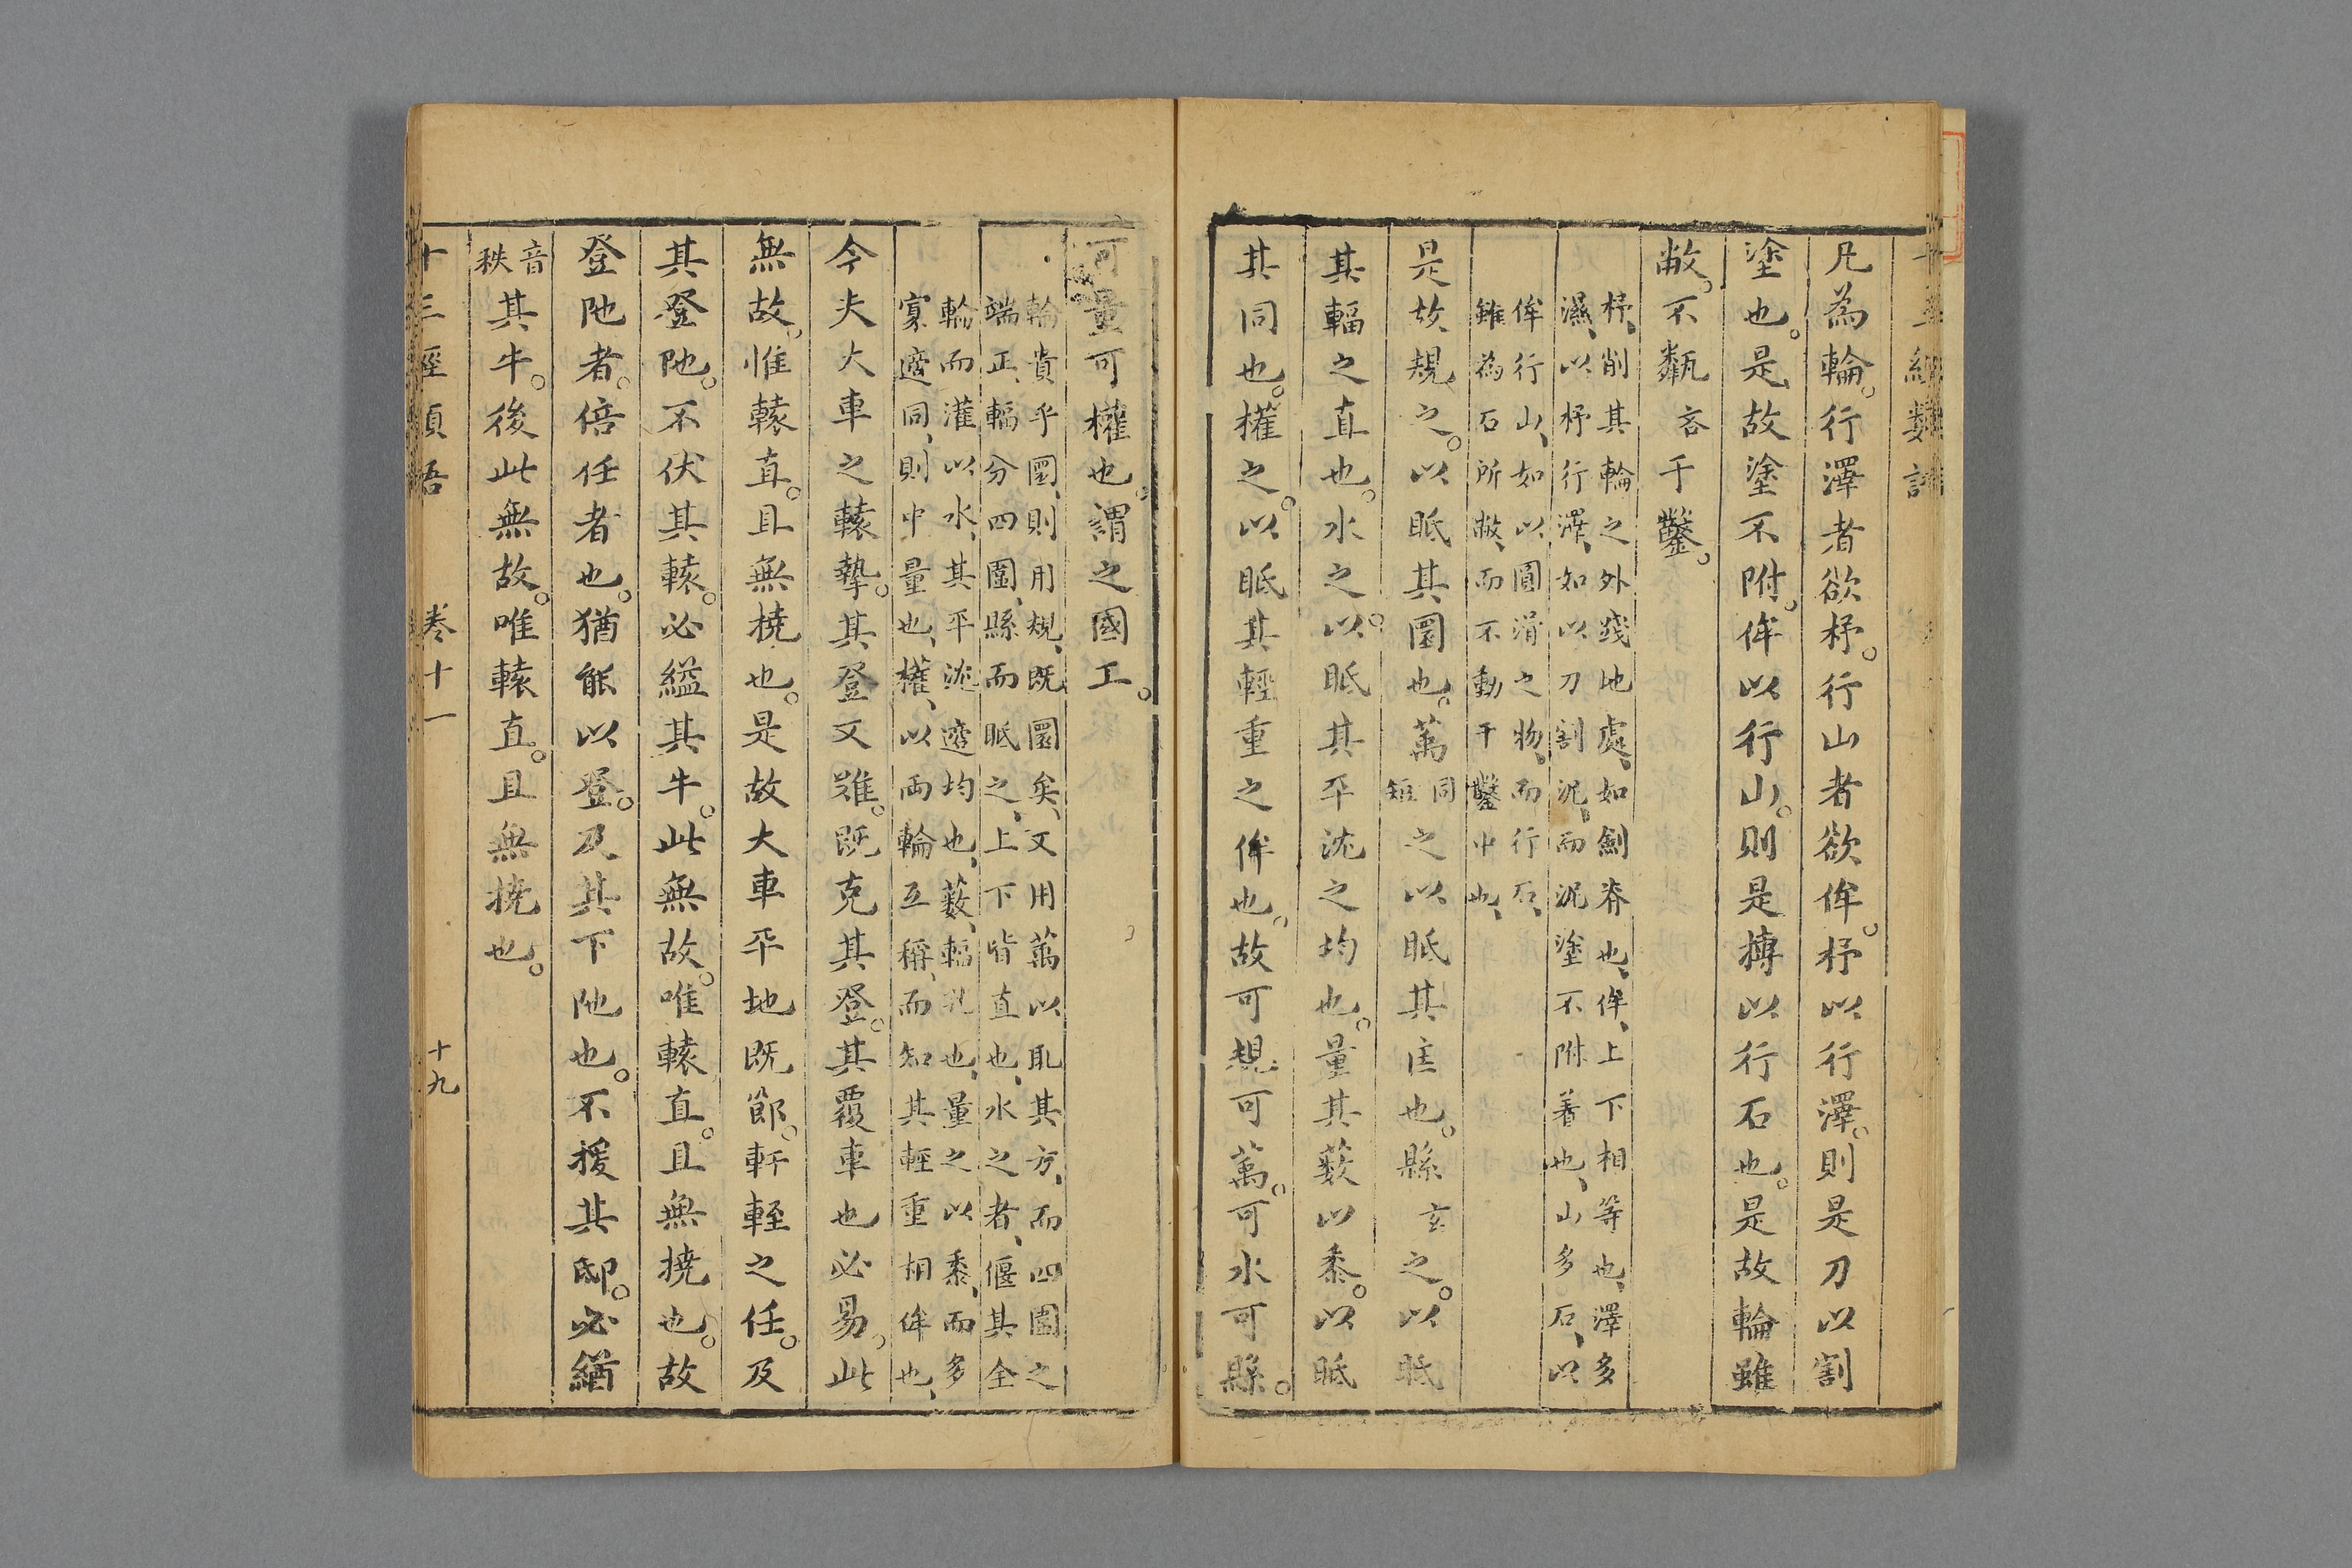 凡為輪。行澤者欲杼。行山者欲侔。杼以行澤。則是刀以割
塗也。是故塗不附。侔以行山。則是摶以行石也。是故輪雖
敝。不甐吝于鑿。
杼、削其輪之外踐地處、如劍脊也、侔、上下相等也、澤多
濕、以杼行澤、如以刀割泥、而泥塗不附着也、山多石、以
侔行山、如以圓滑之物、而行石、
雖為石所敝、而不動于鑿中也、
是故規之。以眂其圜也。萬同矩之以眂其匡也。縣玄之。以眂
其輻之直也。水之。以眂其平沈之均也。量其藪以黍。以眂
其同也。權之。以眂其輕重之侔也。故可規可萬。可水可縣。
可量可權也。謂之國工。
輪貴乎圜、則用規、既圜矣、又用萬以眂其方、而四圜之
端正、輻分四圜、縣而眂之、上下皆直也、水之者、偃其全
輪而灌以水、其平沈適均也、藪、輻孔也、量之以黍、而多
寡適同、則中量也、權、以両輪互稱、而知其輕重相侔也、
今夫大車之轅摯。其登又難。既克其登。其覆車也必易。此
無故。惟轅直。且無橈也。是故大車平地既節。軒輊之任。及
其登阤。不伏其轅。必縊其牛。此無故。唯轅直。且無撓也。故
登阤者。倍任者也。猶能以登。及其下阤也。不援其邸。必緧
音秩其牛。後此無故。唯轅直。且無撓也。
十三經類語
卷十一
十九